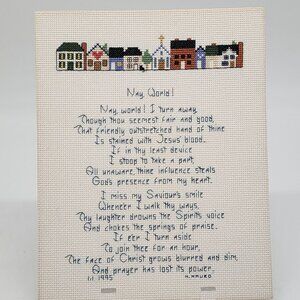 Nay, World!
Nay, world! I turn away,
Though thou seemest fair and good,
That friendly outstretched hand of thine
Is stained with Jesus' blood.
If in thy least device
I stoop to take a part,
All unaware, thine influence steals
God's presence from my heart.
I miss my Saviour's smile
Whene'er I walk thy ways,
Thy laughter drowns the Spirit's voice
And chokes the springs of praise.
If e'er I turn aside
To join thee for an hour,
The face of Christ grows blurred and dim,
And prayer has lost its power.
1995